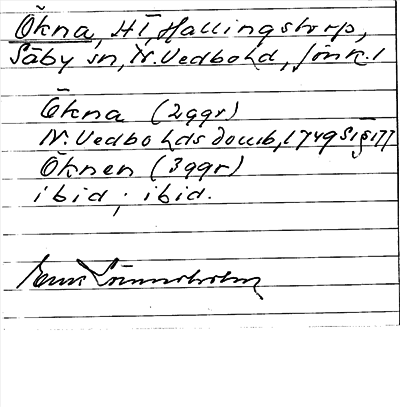 Ökna, HT, Hallingstorp,
Säby sn, N. Vedbo hd, Jönk. l
Ökna (2 ggr)
N. Vedbo hds domb, 1749 S1 § 177
Öknen (3 ggr)
ibid; ibid.